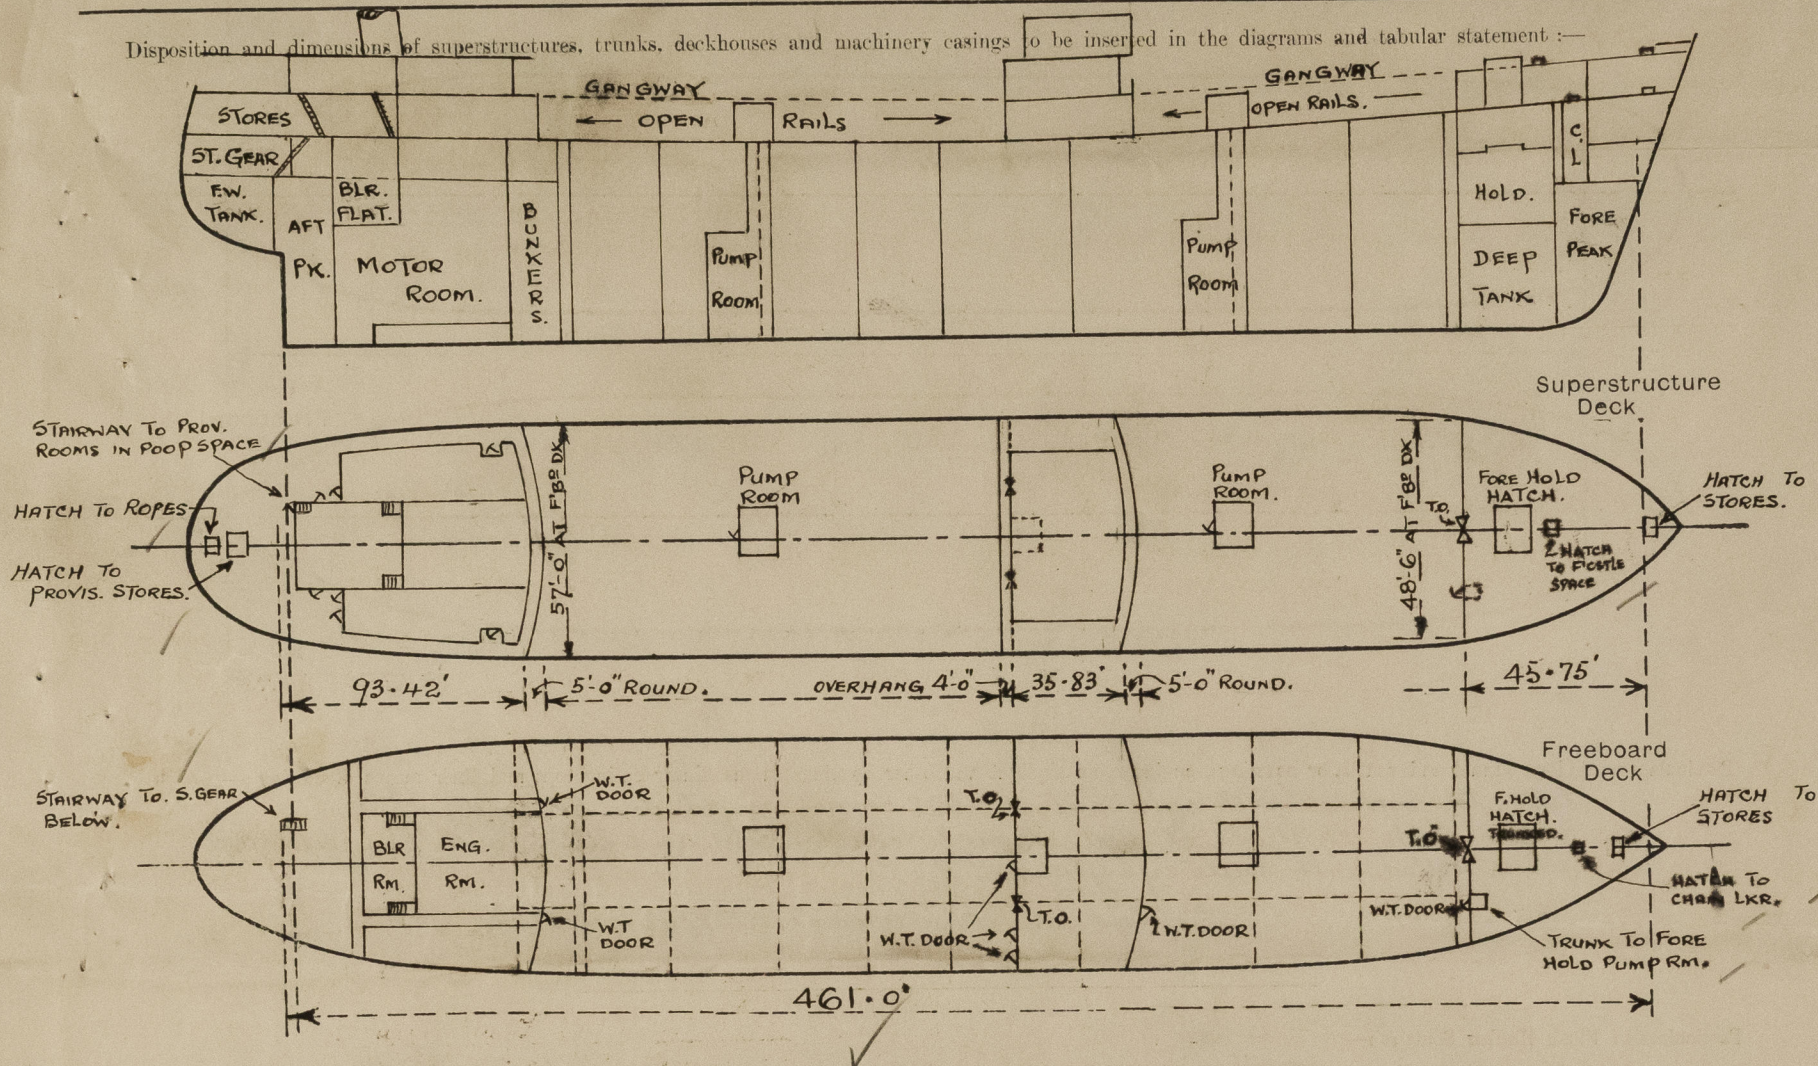 Disposition and dimensions of superstructures, trunks, deckhouses and machinery casings to be inserted in the diagrams and tabular statement :—
GANGWAY
GANGWAY
STORES
← OPEN
RAILS →
← OPEN RAILS.
ST. GEAR
F.W.
TANK.
BLR.
FLAT.
AFT
PK.
MOTOR
ROOM.
BUNKERS.
PUMP
ROOM
PUMP
ROOM
HOLD.
DEEP
TANK
C.
L
FORE
PEAK
Superstructure
Deck
STAIRWAY TO PROV.
ROOMS IN POOP SPACE
HATCH TO ROPES
HATCH TO
PROVIS. STORES.
57'-0" AT F'BD DK
PUMP
ROOM
PUMP
ROOM.
48'-6" AT F'BD DK
T.O.
FORE HOLD
HATCH.
HATCH
TO F'CSTLE
SPACE
HATCH TO
STORES.
93·42'
5'-0" ROUND.
OVERHANG 4'-0"
35·83'
5'-0" ROUND.
45·75'
Freeboard
Deck
STAIRWAY TO. S.GEAR
BELOW.
BLR
RM.
ENG.
RM.
W.T.
DOOR
W.T
DOOR
T.O.
T.O.
W.T. DOOR
W.T. DOOR
T.O.
F. HOLD
HATCH.
W.T. DOOR
HATCH TO
STORES
HATCH TO
CHAIN LKR.
TRUNK TO FORE
HOLD PUMP RM.
461·0'